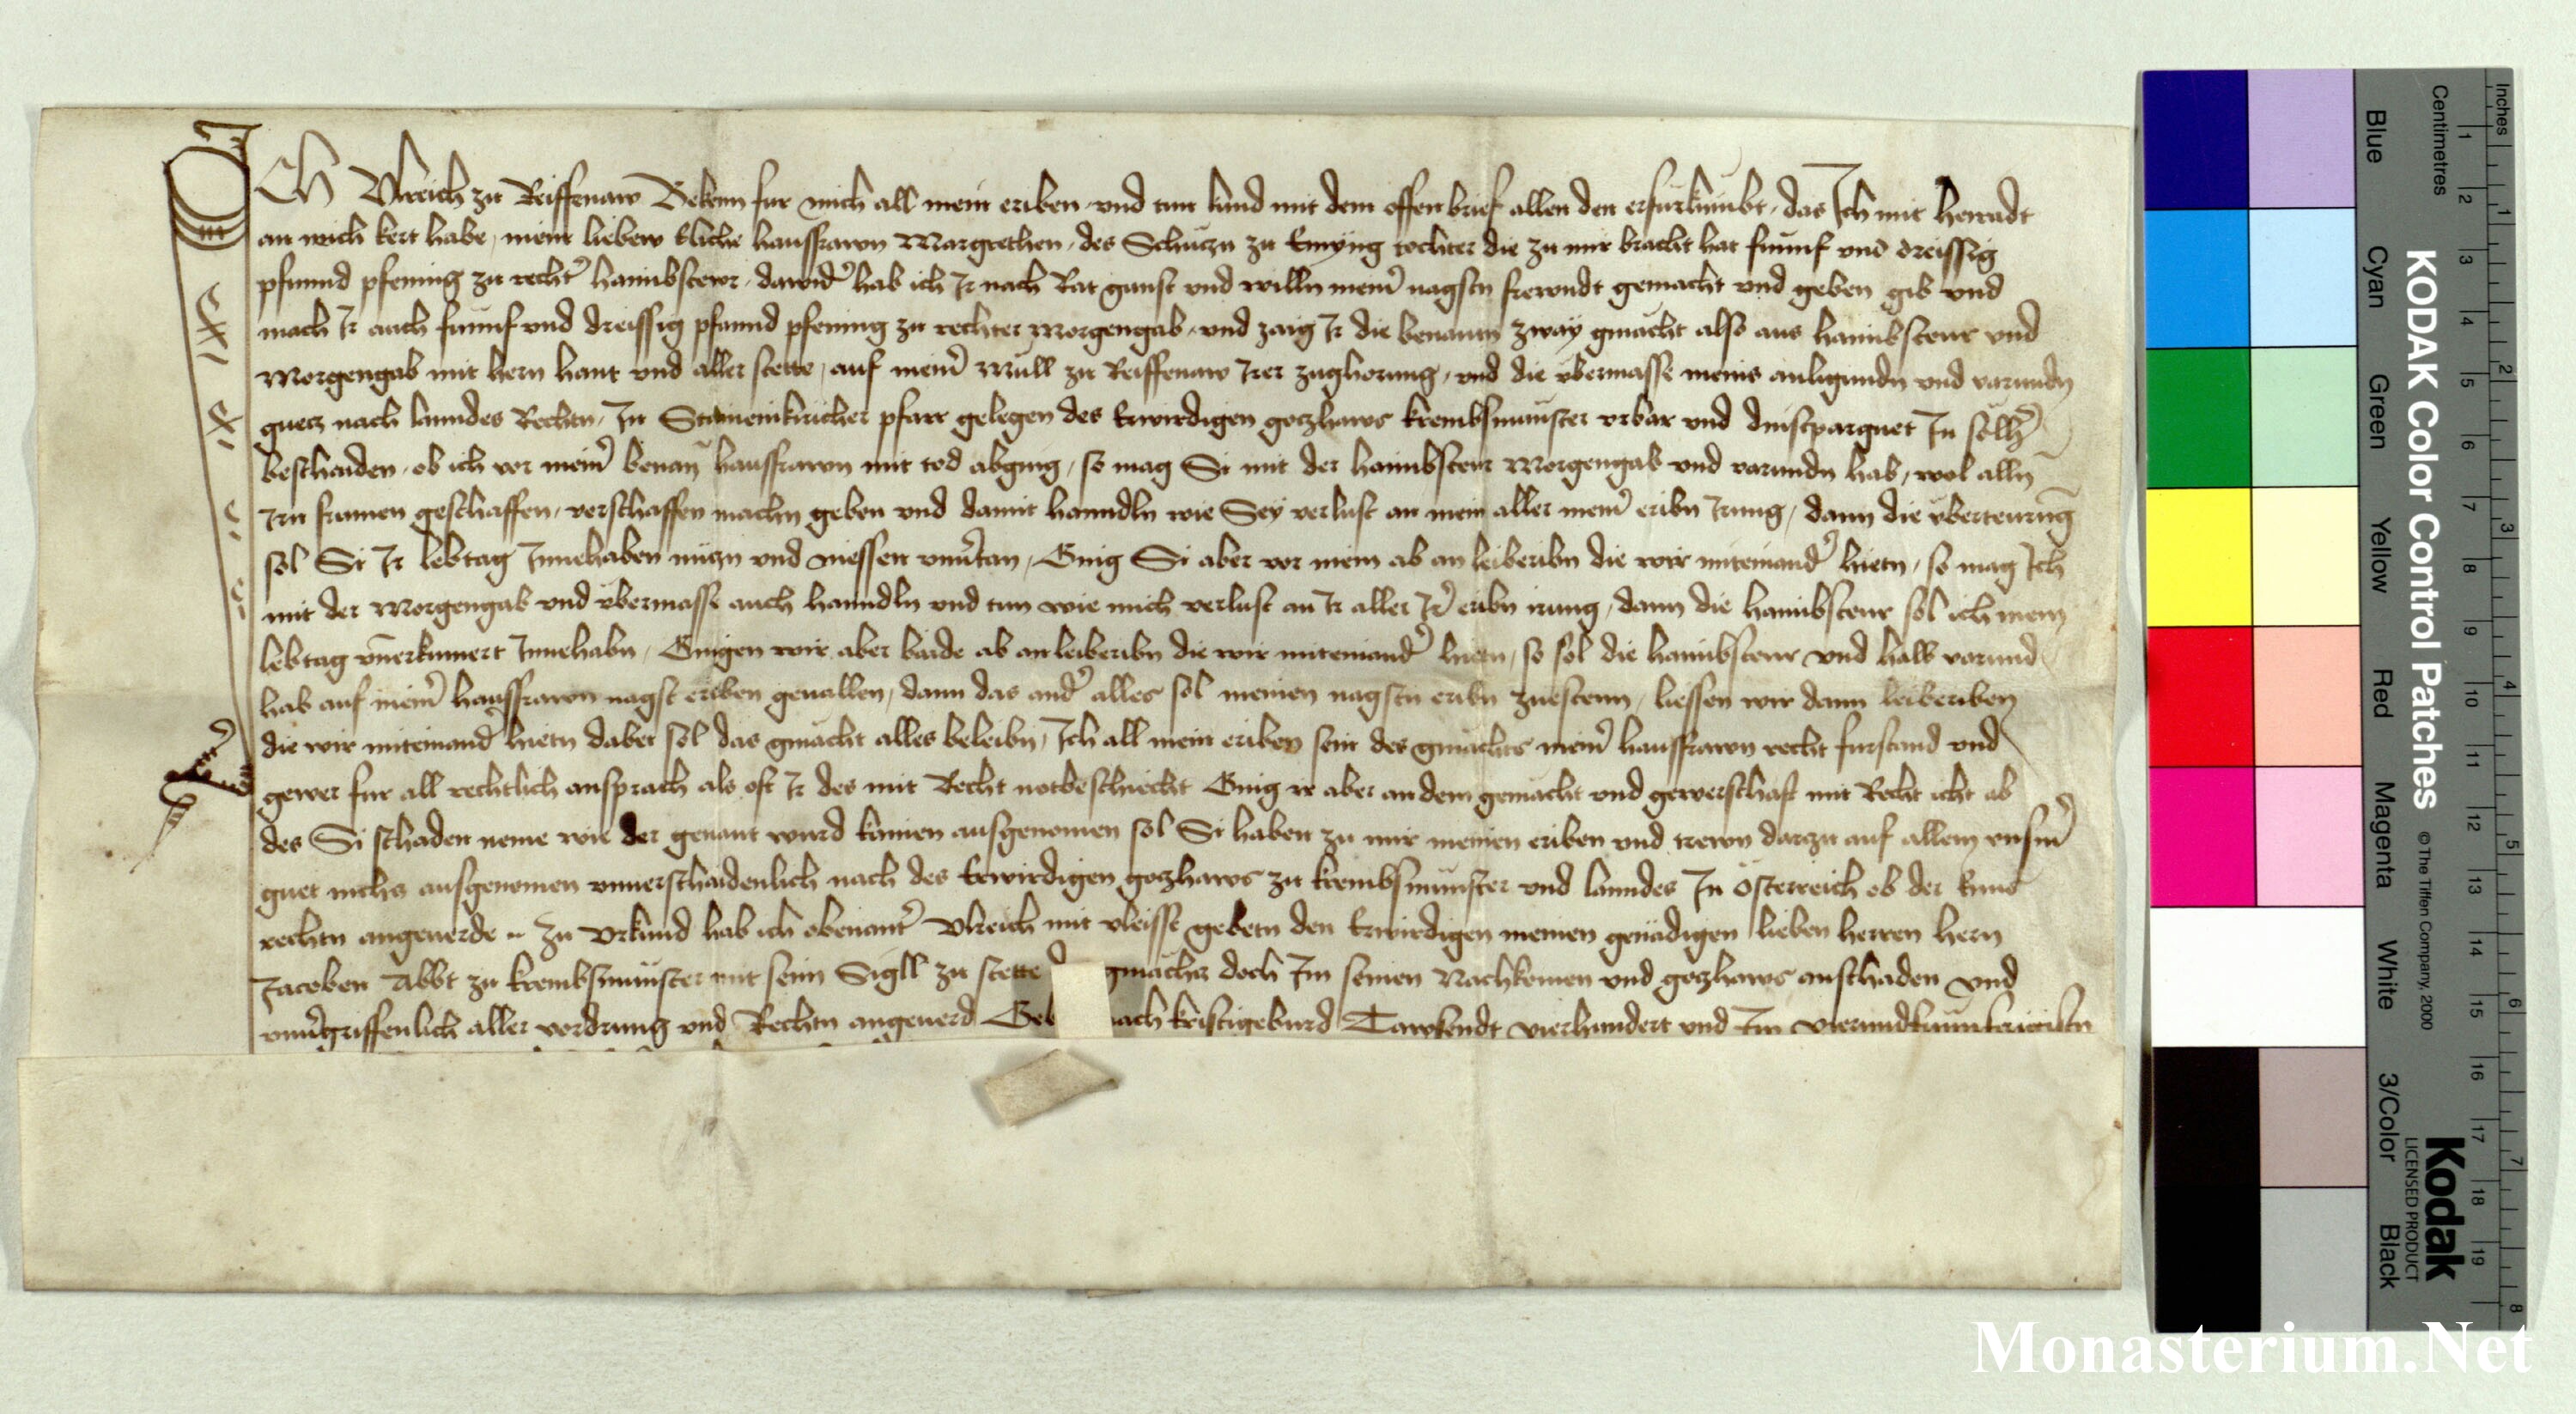 ICH Vlreich zu Reiffenaw Bekenn fur mich all mein eriben vnd tun kund mit dem offen brief allen den er furkumbt, das Ich mit heyradt
an mich kert habe, mein liebew Eliche hausfrawn Margrethen, des Schuczn zu Emyng tochter die zu mir bracht hat funnf vnd dreissig
pfunnd pfening zu recht' haimbstewr, dawid' hab ich Ir nach Rat gunst vnd willn mein' nagstn frewndt gemacht vnd geben gib vnd
mach Ir auch funnf vnd dreissig pfunnd pfening zu rechter Morgengab, vnd zaig Ir die benantn zway gmächt also aus haimbsteur vnd
Morgengab mit hern hant vnd aller stette, auf mein' Müll zu Reiffenaw Irer zughorung, vnd die vbermasse meins anligundn vnd varundn
guetz nach lanndes Rechtn, In pfarr gelegen des Erwirdigen goczhaws krembsmünster vrbar vnd dinstparguet In sölh'
beschaiden, ob ich vor mein' benan hausfrawn mit tod abging, so mag Si mit der haimbsteur Morgengab vnd varundn hab, wol alln
Irn frumen geschaffen, verschaffen machn geben vnd damit hanndln wie Sey verlust an mein aller mein' eribn Irung, dann die vberteurung
sol Si Ir lebtag Innehaben nüczn vnd niessen vnu'tan, Gieng Si aber vor mein ab an leiberibn die wir miteinand' hietn, so mag Ich
mit der Morgengab vnd vbermasse auch hanndln vnd tun wie mich verlust an Ir aller Ir' eribn irung, dann die haimbsteur sol ich mein
lebtag vnuerkumert Innehabn, Giengen wir aber baide ab an leiberibn die wir miteinand' hietn, so sol die haimbsteur vnd halb varund
hab auf mein' hausfrawn nagst eriben geuallen, dann das and' alles sol meinen nagstn eribn zuesteen, liessen wir dann leiberiben
die wir miteinand' hietn dabei sol das gmächt alles beleibn, Ich all mein eriben sein des gmächts mein' hausfrawn recht furstand vnd
gewer fur all rechtlich ansprach als oft Ir des mit Recht notbeschiecht Gieng ir aber an dem gemächt vnd gewerschaft mit Recht icht ab
des Si schaden neme wie der genant wurd kainen ausgenomen sol Si haben zu mir meinen eriben vnd trewn darzu auf allem vnserm
guet nichts ausgenomen vnuerschaidenlich nach des Erwirdigen goczhaws zu krembsmünster vnd lanndes In Österreich ob der Enns
rechtn angeuerde Zu vrkund hab ich obenant' Vlreich mit vleisse gebetn den Erwirdigen meinen genädigen lieben herren hern
Jacoben Abbt zu krembsmünster mit seim Sigll zu stette gmächts doch Im seinen Nachkomen vnd goczhaws anschaden vnd
vnu'griffenlich aller vordrung vnd Rechtn angeuerd Geb ach kristigeburd Tawsendt vierhundert vnd Im
Inches
Centimetres
1 2 3 4 5 6 7 8
1 2 3 4 5 6 7 8 9 10 11 12 13 14 15 16 17 18 19
KODAK Color Control Patches
© The Tiffen Company, 2000
Kodak
LICENSED PRODUCT
Blue
Cyan
Green
Yellow
Red
Magenta
White
3/Color
Black
Monasterium.Net